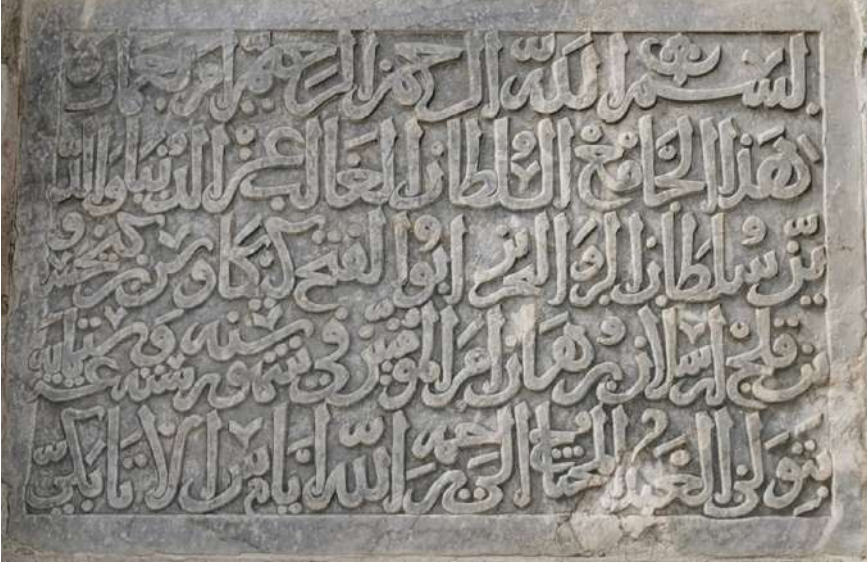 بسم الله الرحمن الرحيم امر بعمارت
هذا الجامع السلطان الغالب عز الدنيا والد
ين سلطان البر والبحرين ابو الفتح كيكاوس بن كيخسرو
بن قلج ارسلان برهان امير المؤمنين في شهور سنه ستة عشر وستمايه
بتولى العبد المحتاج الى رحمه الله اياس الاتابكي